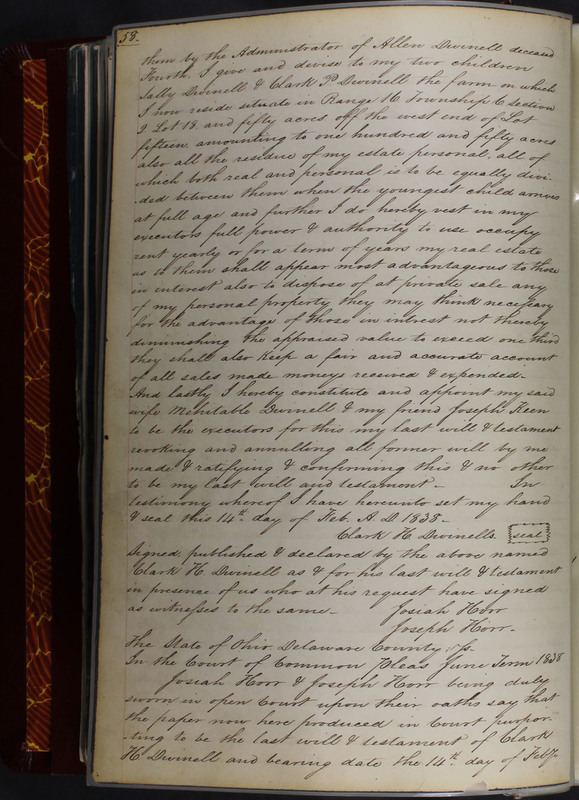 58.
them by the Administrator of Allen Dwinell deceased
Fourth. I give and devise to my two children
Sally Dwinell & Clark P. Dwinell the farm on which
I now reside situate in Range 16 Township 6 Section
2 Lot 18 and fifty acres off the west end of Lot
fifteen, amounting to one hundred and fifty acres
also all the residue of my estate personal, all of
which both real and personal is to be equally divi-
-ded between them when the youngest child arrives
at full age and further I do hereby vest in my
executors full power & authority to use occupy
rent yearly or for a term of years my real estate
as to them shall appear most advantageous to those
in interest also to dispose of at private sale any
of my personal property they may think necessary
for the advantage of those in intrest not thereby
diminishing the appraised value to exceed one third
they shall also keep a fair and accurate account
of all sales made moneys received & expended.
And lastly I hereby constitute and appoint my said
wife Mehitable Dwinell & my friend Joseph Keen
to be the executors for this my last will & testament
revoking and annulling all former will by me
made & ratifying & confirming this & no other
to be my last will and testament - In
testimony whereof I have hereunto set my hand
& seal this 14th day of Feb. A.D. 1838-
Clark H. Dwinells. seal
Signed, published & declared by the above named
Clark H. Dwinell as & for his last will & testament
in presence of us who at his request have signed
as witnesses to the same- Josiah Horr
Joseph Horr-
The State of Ohio Delaware County: ss.
In the Court of Common Pleas June Term 1838
Josiah Horr & Joseph Horr being duly
sworn in open Court upon their oaths say that
the paper now here produced in Court purpor-
-ting to be the last will & testament of Clark
H. Dwinell and bearing date the 14th day of Feb.